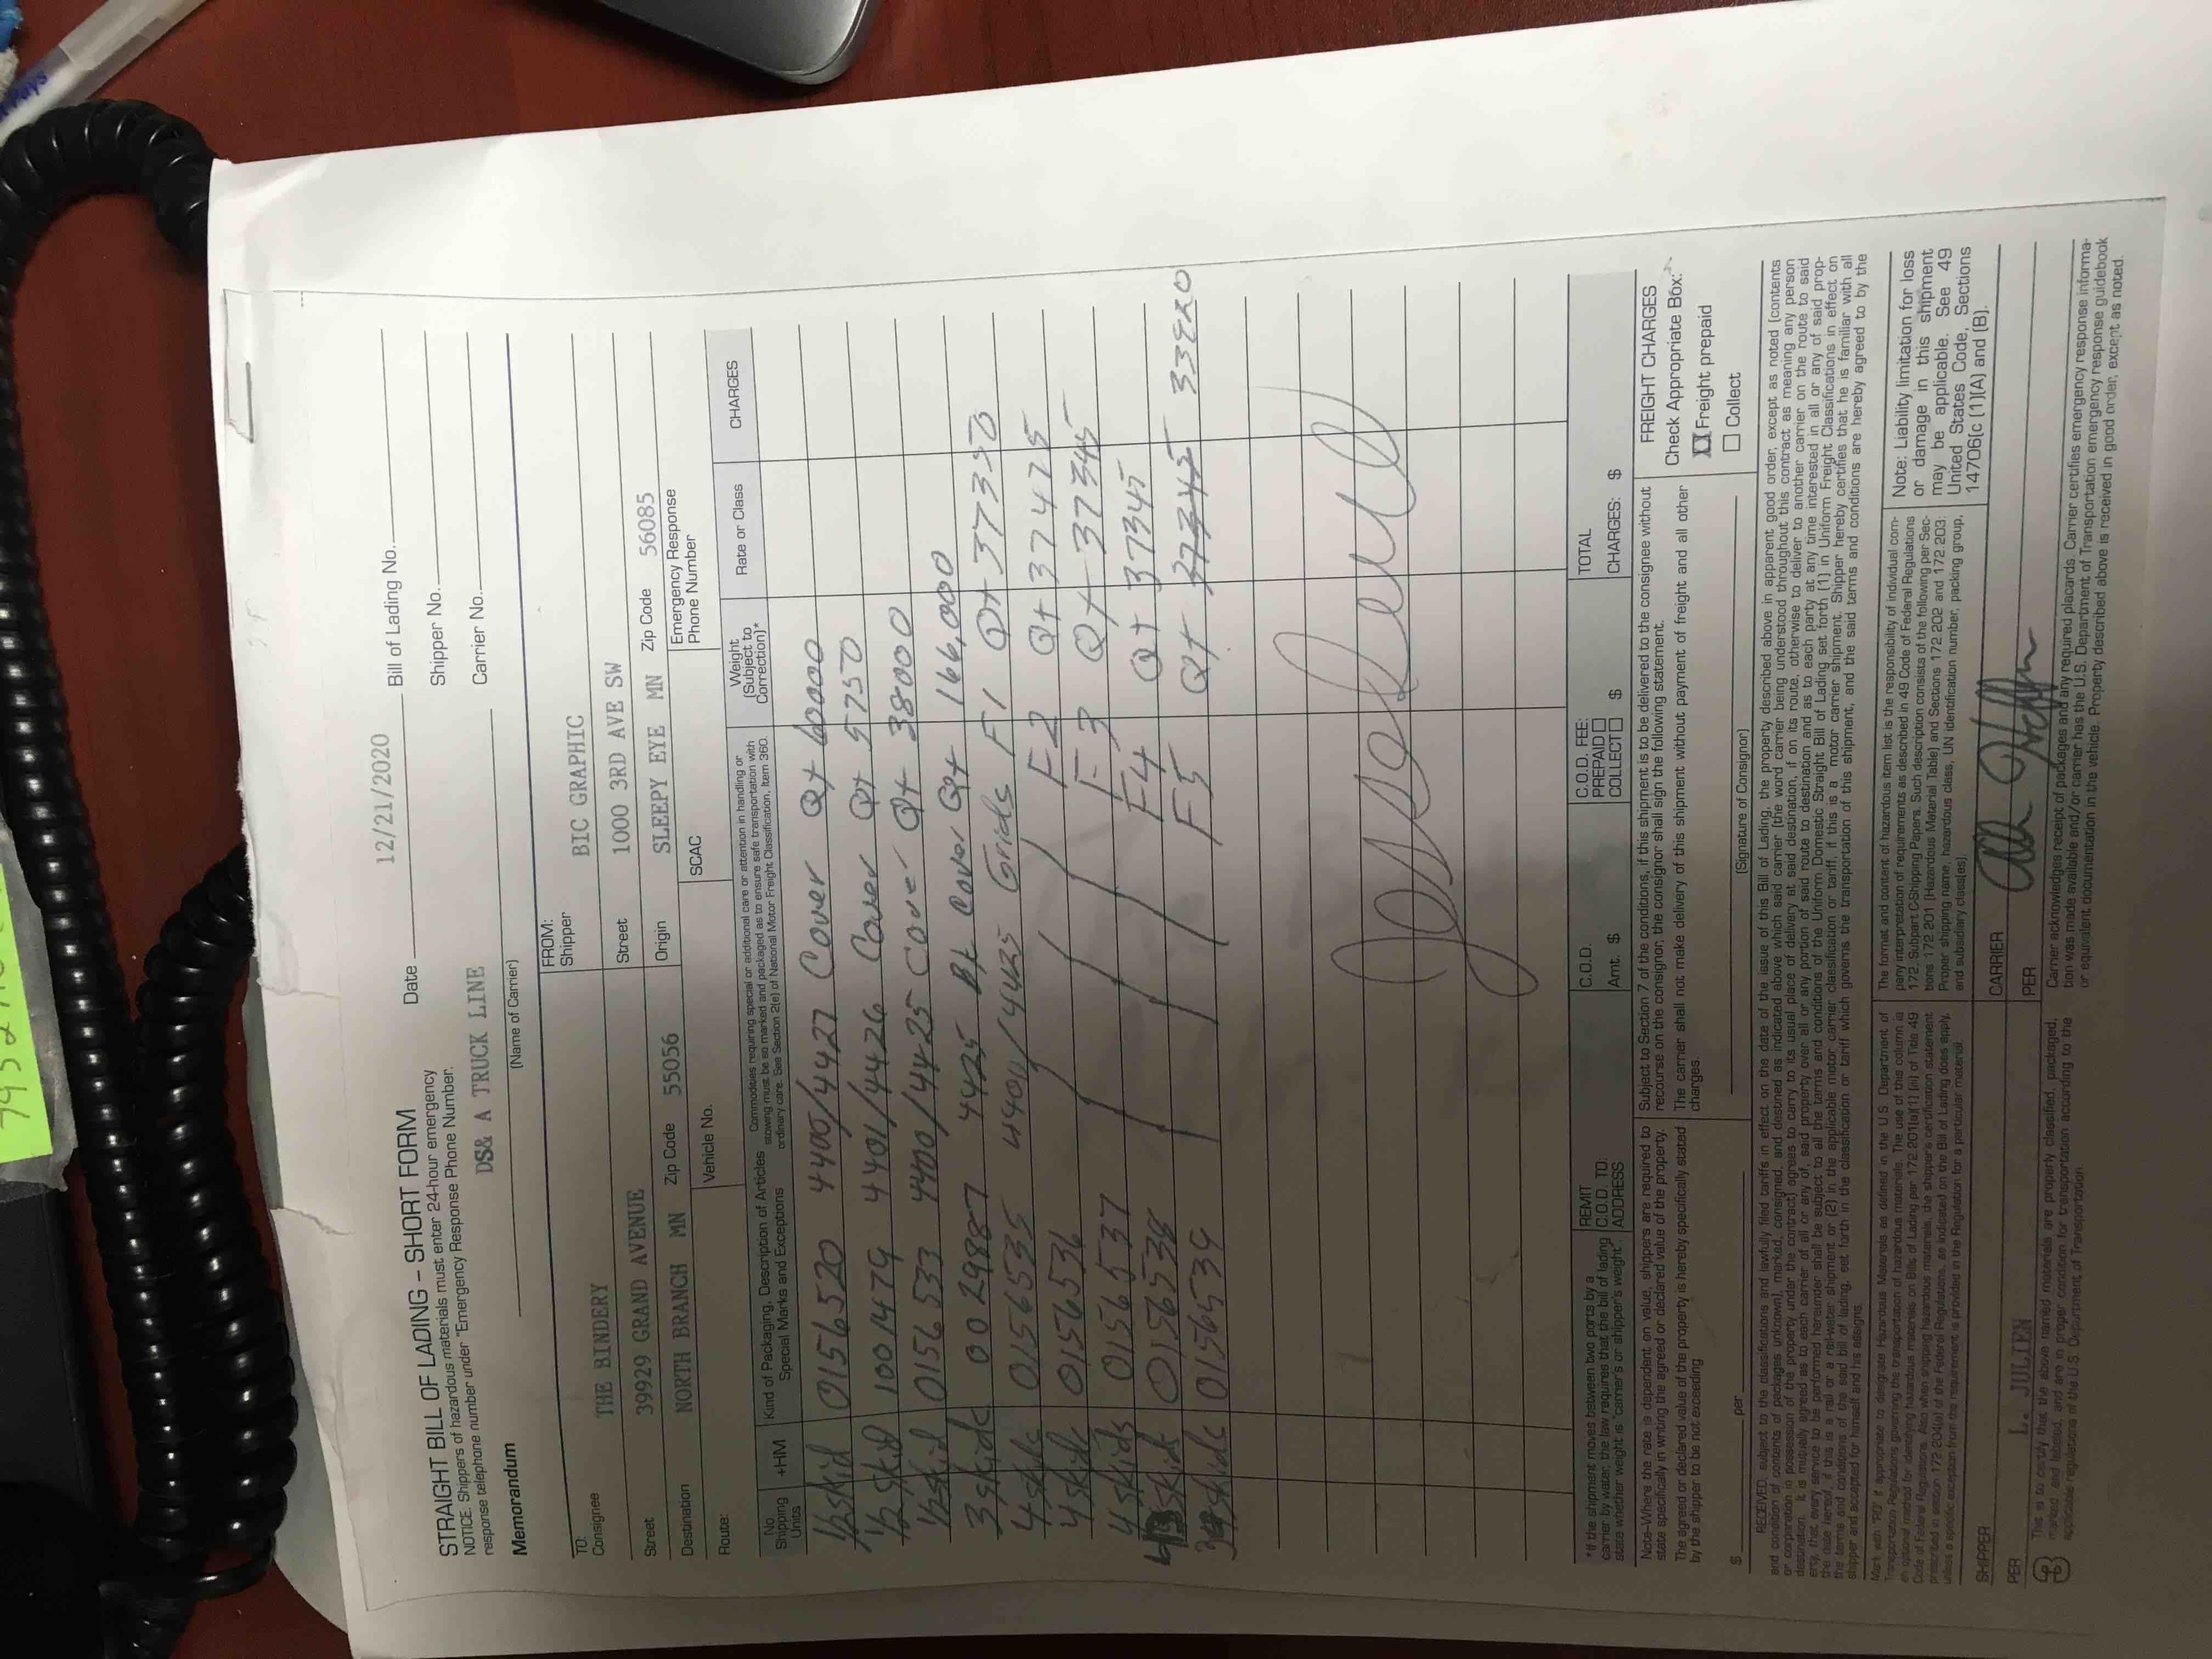 12/21/2020
Date Bill of Lading No.
STRAIGHT BILL OF LADING – SHORT FORM
NOTICE: Shippers of hazardous materials must enter 24-hour emergency
response telephone number under "Emergency Response Phone Number.
Shipper No.
DS& A TRUCK LINE
Carrier No.
Memorandum
(Name of Carrier)
TO:
Consignee THE BINDERY
Street 39929 GRAND AVENUE
Destination NORTH BRANCH MN Zip Code 55056
FROM:
Shipper BIC GRAPHIC
Street 1000 3RD AVE SW
Origin SLEEPY EYE MN Zip Code 56085
Route: Vehicle No. SCAC Emergency Response
Phone Number
No.
Shipping
Units
+HM
Kind of Packaging, Description of Articles
Special Marks and Exceptions
Commodities requiring special or additional care or attention in handling or
stowing must be so marked and packaged as to ensure safe transportation with
ordinary care. See Section 2(e) of National Motor Freight Classification, Item 360.
Weight
(Subject to
Correction)*
Rate or Class
CHARGES
1/2 skid 0156520 4400/4427 Cover Qt 60000
1/2 skid 1001479 4401/4426 Cover Qt 5750
1/2 skid 0156533 4400/4425 Cover Qt 38000
3 skids 0029887 4425 Cover Qt 166,000
4 skids 0156535 4400/4425 Grids F1 Qt 37350
4 skids 0156536 F2 Qt 37475
4 skids 0156537 F3 Qt 37345
skids 0156538 F4 Qt 37345
skids 0156539 F5 Qt 37345
*If the shipment moves between two ports by a
carrier by water, the law requires that the bill of lading
state whether weight is "carrier's or shipper's weight".
REMIT
C.O.D. TO:
ADDRESS
C.O.D.
Amt. $
C.O.D. FEE:
PREPAID
COLLECT $
TOTAL
CHARGES: $
Note–Where the rate is dependent on value, shippers are required to
state specifically in writing the agreed or declared value of the property.
The agreed or declared value of the property is hereby specifically stated
by the shipper to be not exceeding
$ per
Subject to Section 7 of the conditions, if this shipment is to be delivered to the consignee without
recourse on the consignor, the consignor shall sign the following statement.
The carrier shall not make delivery of this shipment without payment of freight and all other
charges.
(Signature of Consignor)
FREIGHT CHARGES
Check Appropriate Box:
Freight prepaid
Collect
RECEIVED, subject to the classifications and lawfully filed tariffs in effect on the date of the issue of this Bill of Lading, the property described above in apparent good order, except as noted (contents
and condition of contents of packages unknown), marked, consigned, and destined as indicated above which said carrier (the word carrier being understood throughout this contract as meaning any person
or corporation in possession of the property under the contract) agrees to carry to its usual place of delivery at said destination, if on its route, otherwise to deliver to another carrier on the route to said
destination. It is mutually agreed as to each carrier of all or any of, said property over all or any portion of said route to destination and as to each party at any time interested in all or any of said prop-
erty, that every service to be performed hereunder shall be subject to all the terms and conditions of the Uniform Domestic Straight Bill of Lading set forth (1) in Uniform Freight Classifications in effect on
the date hereof, if this is a rail or a rail-water shipment or (2) in the applicable motor carrier classification or tariff, if this is a motor carrier shipment. Shipper hereby certifies that he is familiar with all
the terms and conditions of the said bill of lading, set forth in the classification or tariff which governs the transportation of this shipment, and the said terms and conditions are hereby agreed to by the
shipper and accepted for himself and his assigns.
Mark with "RQ" if appropriate to designate Hazardous Materials as defined in the U.S. Department of
Transportation Regulations governing the transportation of hazardous materials. The use of this column is
an optional method for identifying hazardous materials on Bills of Lading per 172.201(a)(1)(iii) of Title 49
Code of Federal Regulations. Also when shipping hazardous materials, the shipper's certification statement
prescribed in section 172.204(a) of the Federal Regulations, as indicated on the Bill of Lading does apply,
unless a specific exception from the requirement is provided in the Regulation for a particular material.
The format and content of hazardous item list is the responsibility of individual com-
pany interpretation of requirements as described in 49 Code of Federal Regulations
172, Subpart C-Shipping Papers. Such description consists of the following per Sec-
tions 172.201 (Hazardous Material Table) and Sections 172.202 and 172.203:
Proper shipping name, hazardous class, UN identification number, packing group,
and subsidiary class(es).
Note: Liability limitation for loss
or damage in this shipment
may be applicable. See 49
United States Code, Sections
14706(c (1)(A) and (B).
SHIPPER
PER L. JULIEN
CARRIER
PER
This is to certify that the above named materials are properly classified, packaged,
marked and labeled, and are in proper condition for transportation according to the
applicable regulations of the U.S. Department of Transportation.
Carrier acknowledges receipt of packages and any required placards. Carrier certifies emergency response informa-
tion was made available and/or carrier has the U.S. Department of Transportation emergency response guidebook
or equivalent documentation in the vehicle. Property described above is received in good order, except as noted.